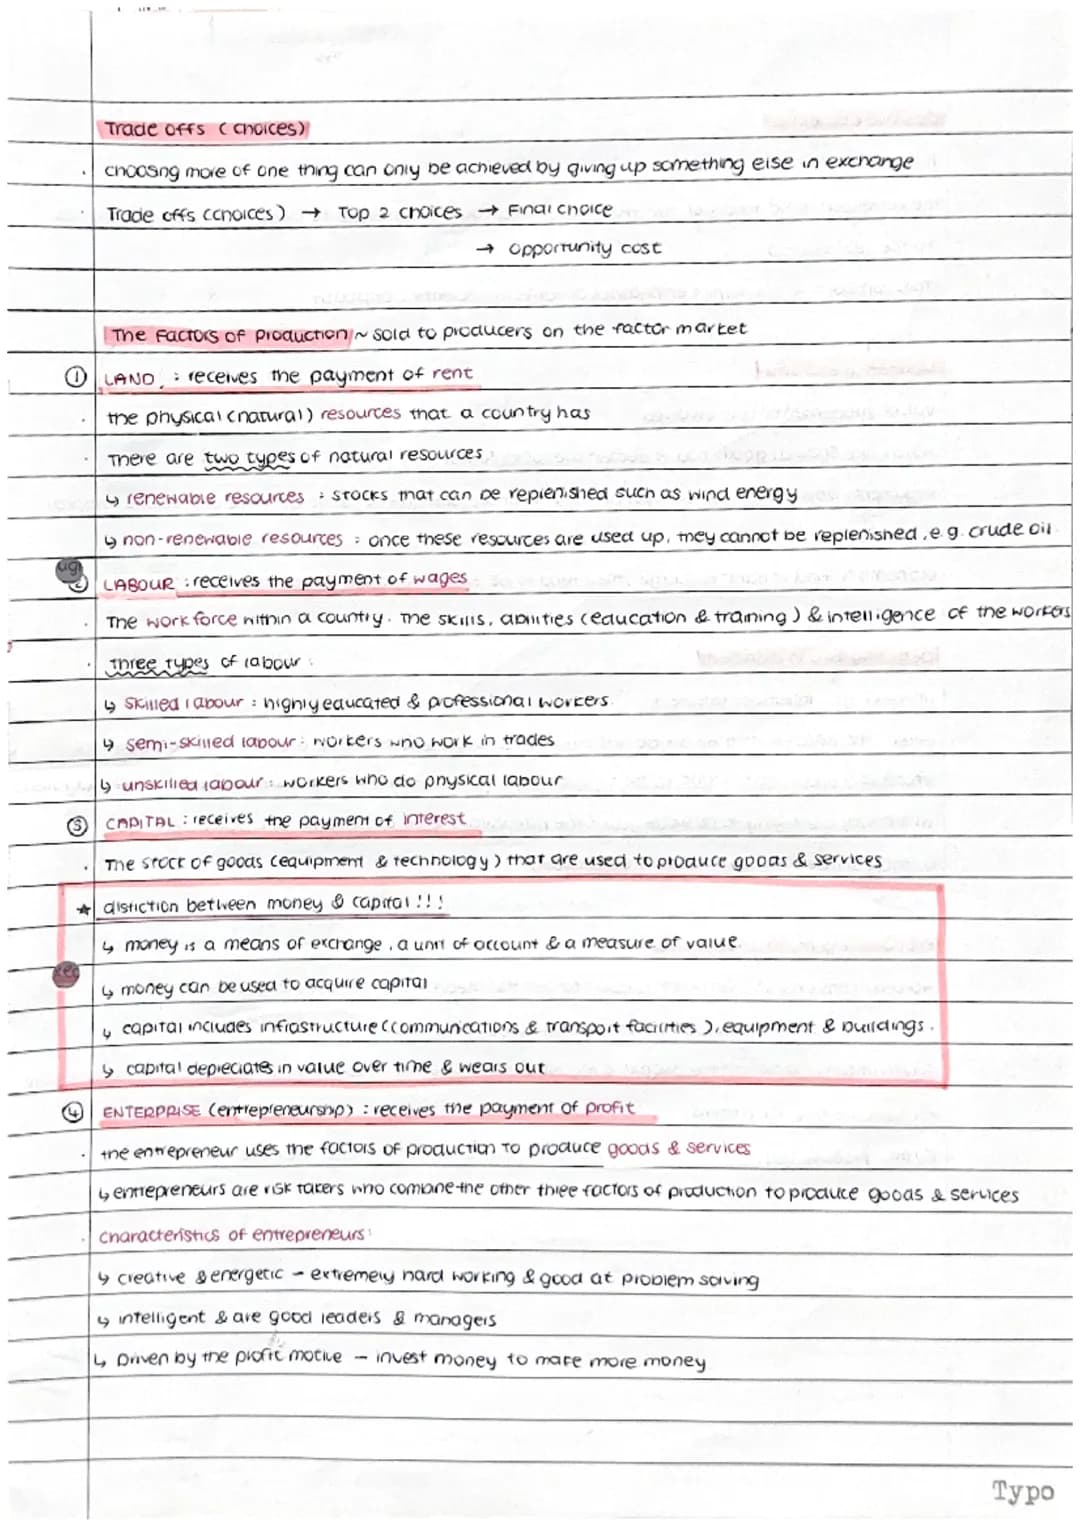 Trade offs (choices)
. choosng more of one thing can only be achieved by giving up something else in exchange
. Trade offs (choices) → Top 2 choices → Final choice
→ opportunity cost
The Factors of Production ~ sold to producers on the factor market
① LAND : receives the payment of rent
. the physical (natural) resources that a country has
. There are two types of natural resources
↳ renewable resources : stocks that can be replenished such as wind energy
↳ non-renewable resources : once these resources are used up, they cannot be replenished, e.g. crude oil.
② LABOUR : receives the payment of wages
. The workforce within a country. The skills, abilities (education & training) & intelligence of the workers
. Three types of labour :
↳ Skilled labour : highly educated & professional workers.
↳ semi-skilled labour : workers who work in trades
↳ unskilled labour : workers who do physical labour
③ CAPITAL : receives the payment of interest
. The stock of goods (equipment & technology) that are used to produce goods & services
★ distiction between money & capital !!!
↳ money is a means of exchange, a unit of account & a measure of value.
↳ money can be used to acquire capital
↳ capital includes infrastructure (communications & transport facilities), equipment & buildings.
↳ capital depreciates in value over time & wears out
④ ENTERPRISE (entrepreneurship) : receives the payment of profit
. the entrepreneur uses the factors of production to produce goods & services
↳ entrepreneurs are risk takers who combine the other three factors of production to produce goods & services
. characteristics of entrepreneurs:
↳ creative & energetic - extremely hard working & good at problem solving
↳ intelligent & are good leaders & managers
↳ Driven by the profit motive - invest money to make more money
Typo